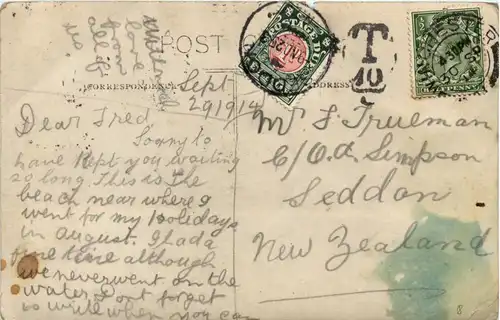 With much
love
from
all of
us.
POST
CORRESPONDENCE
ADDRESS
POSTAGE DUE
T
10
HALFPENNY
Sept
29/9/14
Dear Fred
Sorry to
have kept you waiting
so long. This is the
beach near where I
went for my hoolidays
in August. I had a
fine time although
we never went on the
water. Dont forget
to write when you can
Mr F Trueman
C/O. A. Simpson
Seddon
New Zealand
8